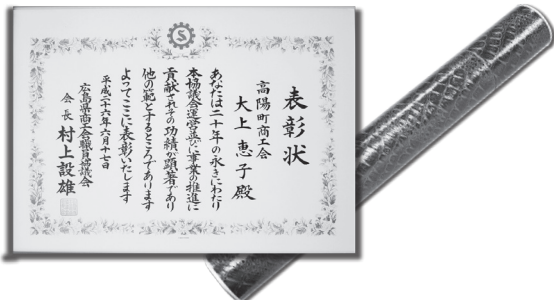 表彰状
高陽町商工会
大上恵子殿
あなたは二十年の永きにわたり
本協議会運営並びに事業の推進に
貢献されその功績が顕著であり
他の範とするところであります
よってここに表彰いたします
平成二十六年六月十七日
広島県商工会職員協議会
会長 村上設雄